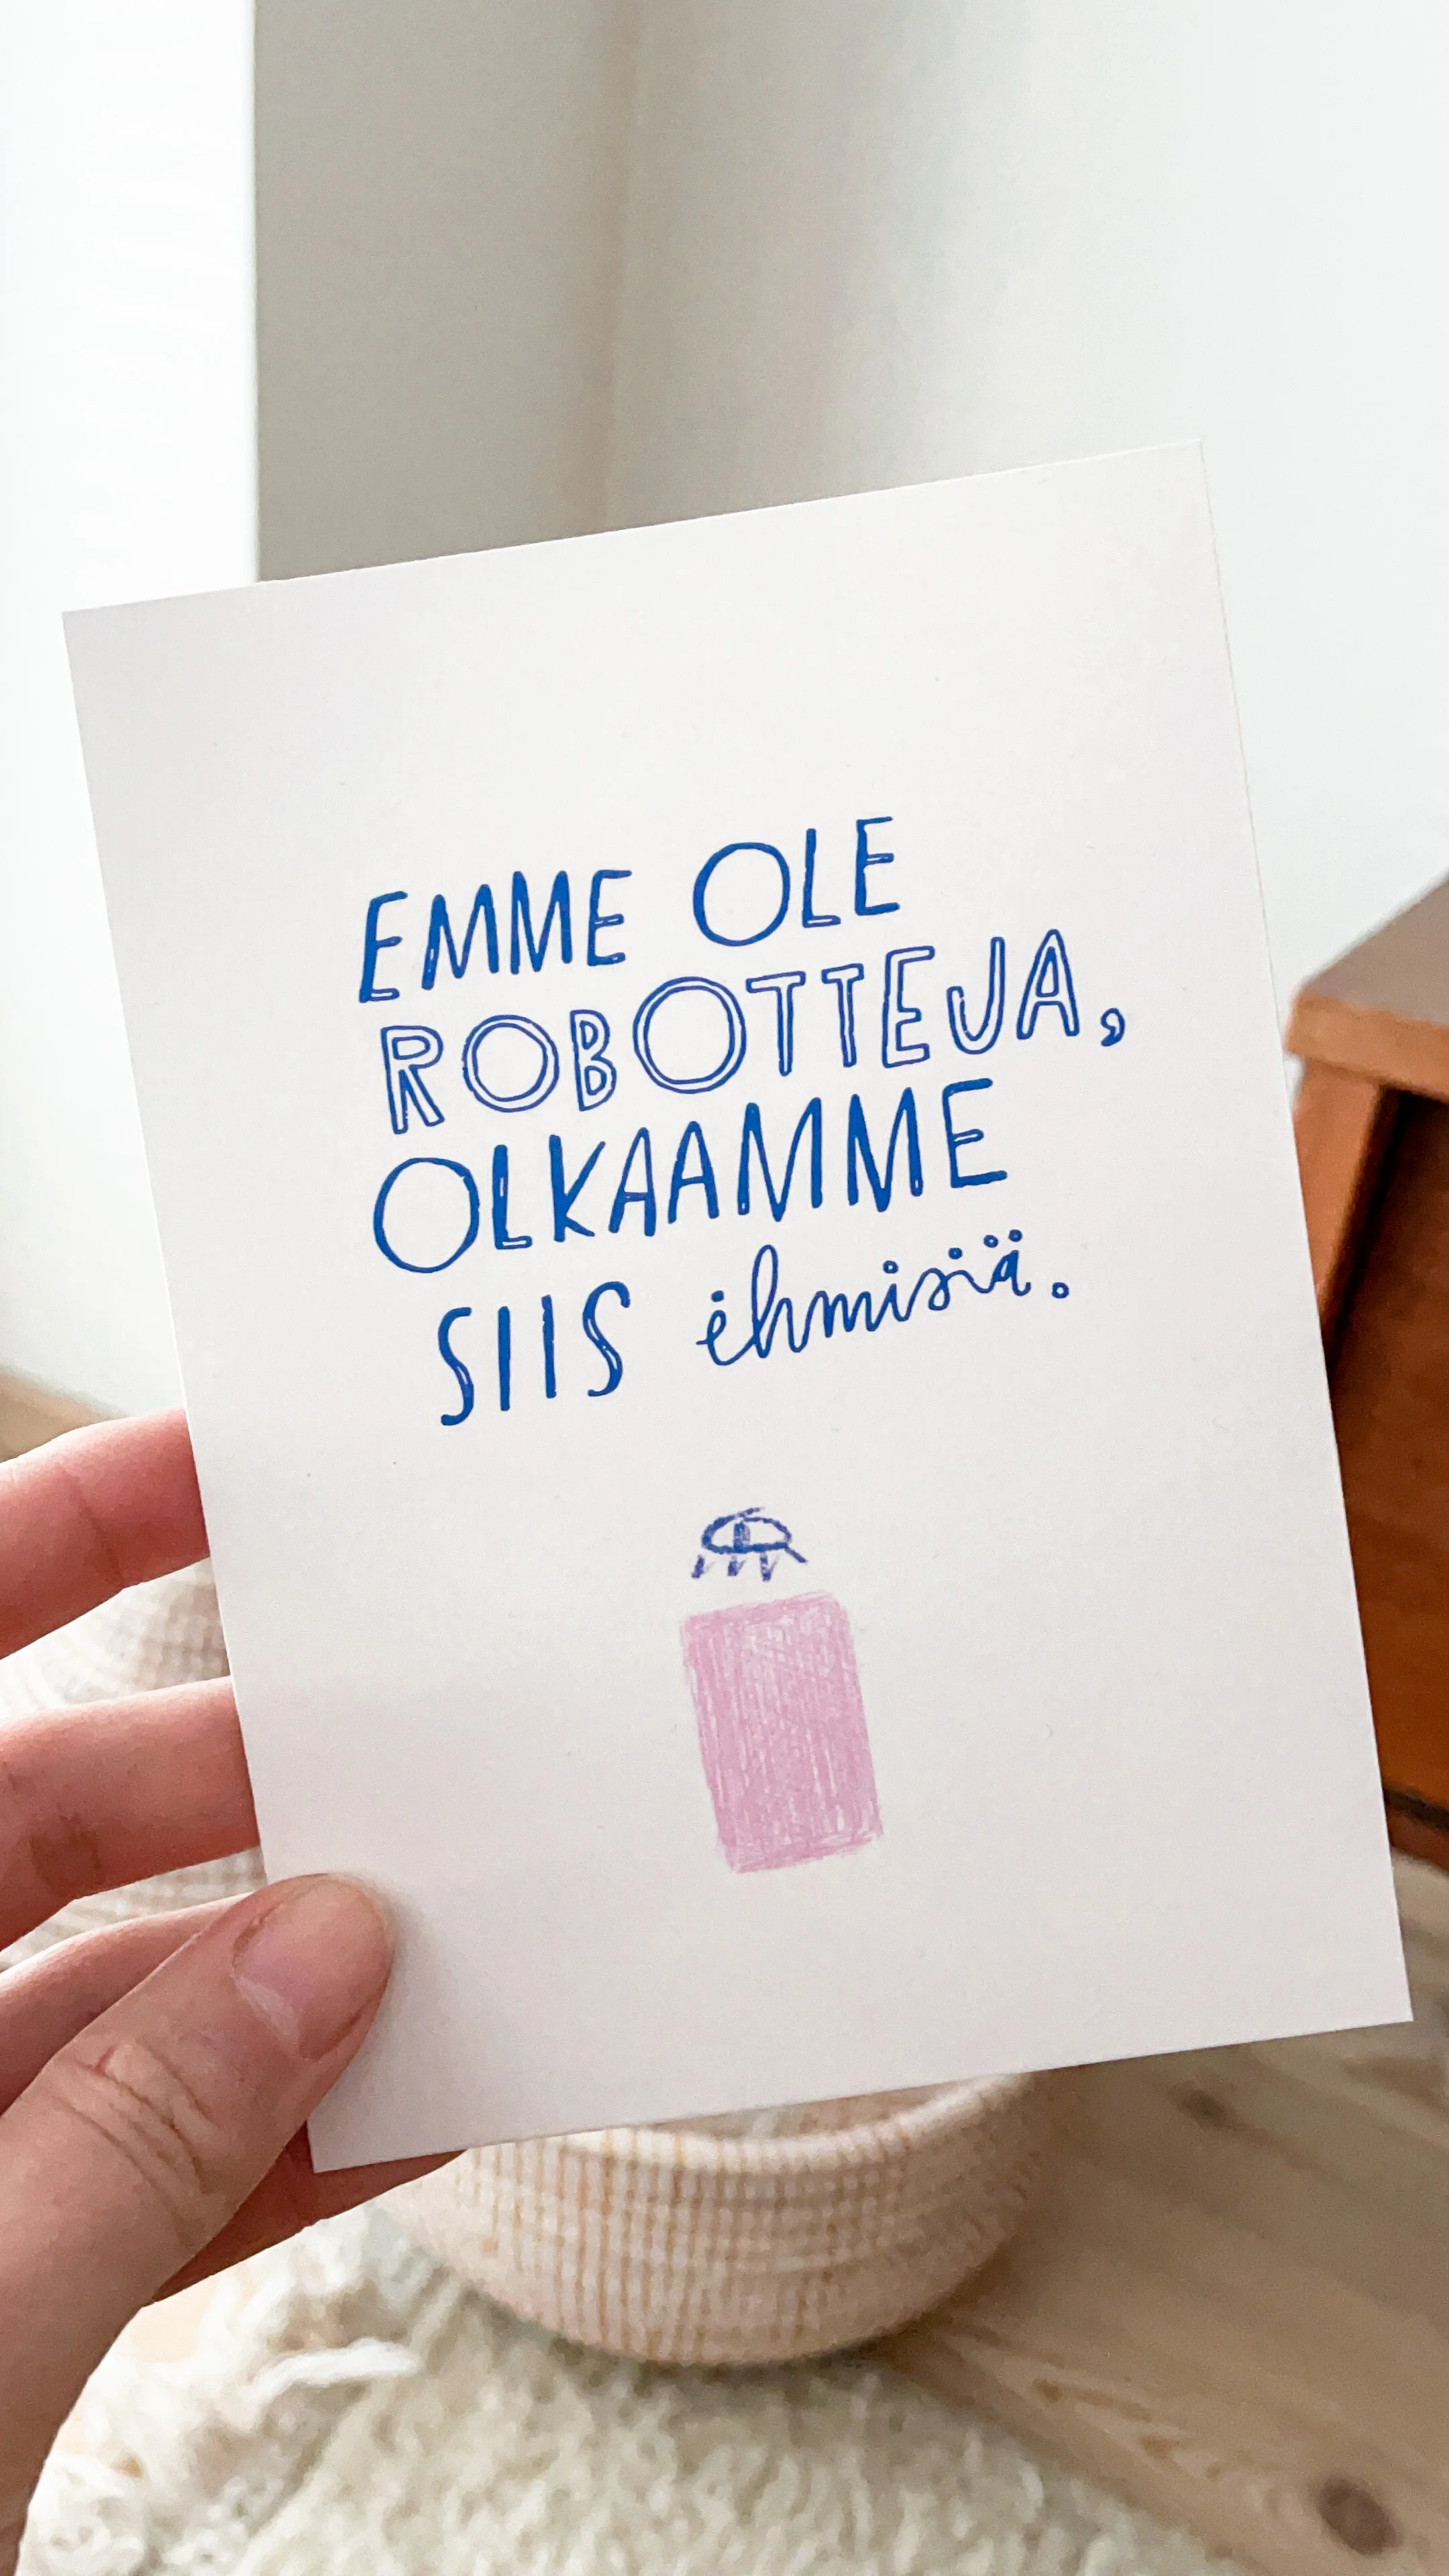 EMME OLE
ROBOTTEJA,
OLKAAMME
SIIS ihmisiä.